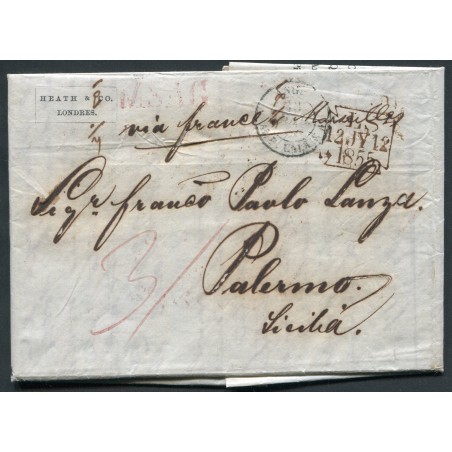 HEATH & CO.
LONDRES.
PAID
via france & Marseilles
12 JY 12
1855
Sigr. franco Paolo Lanza.
3/
Palermo.
Sicilia.